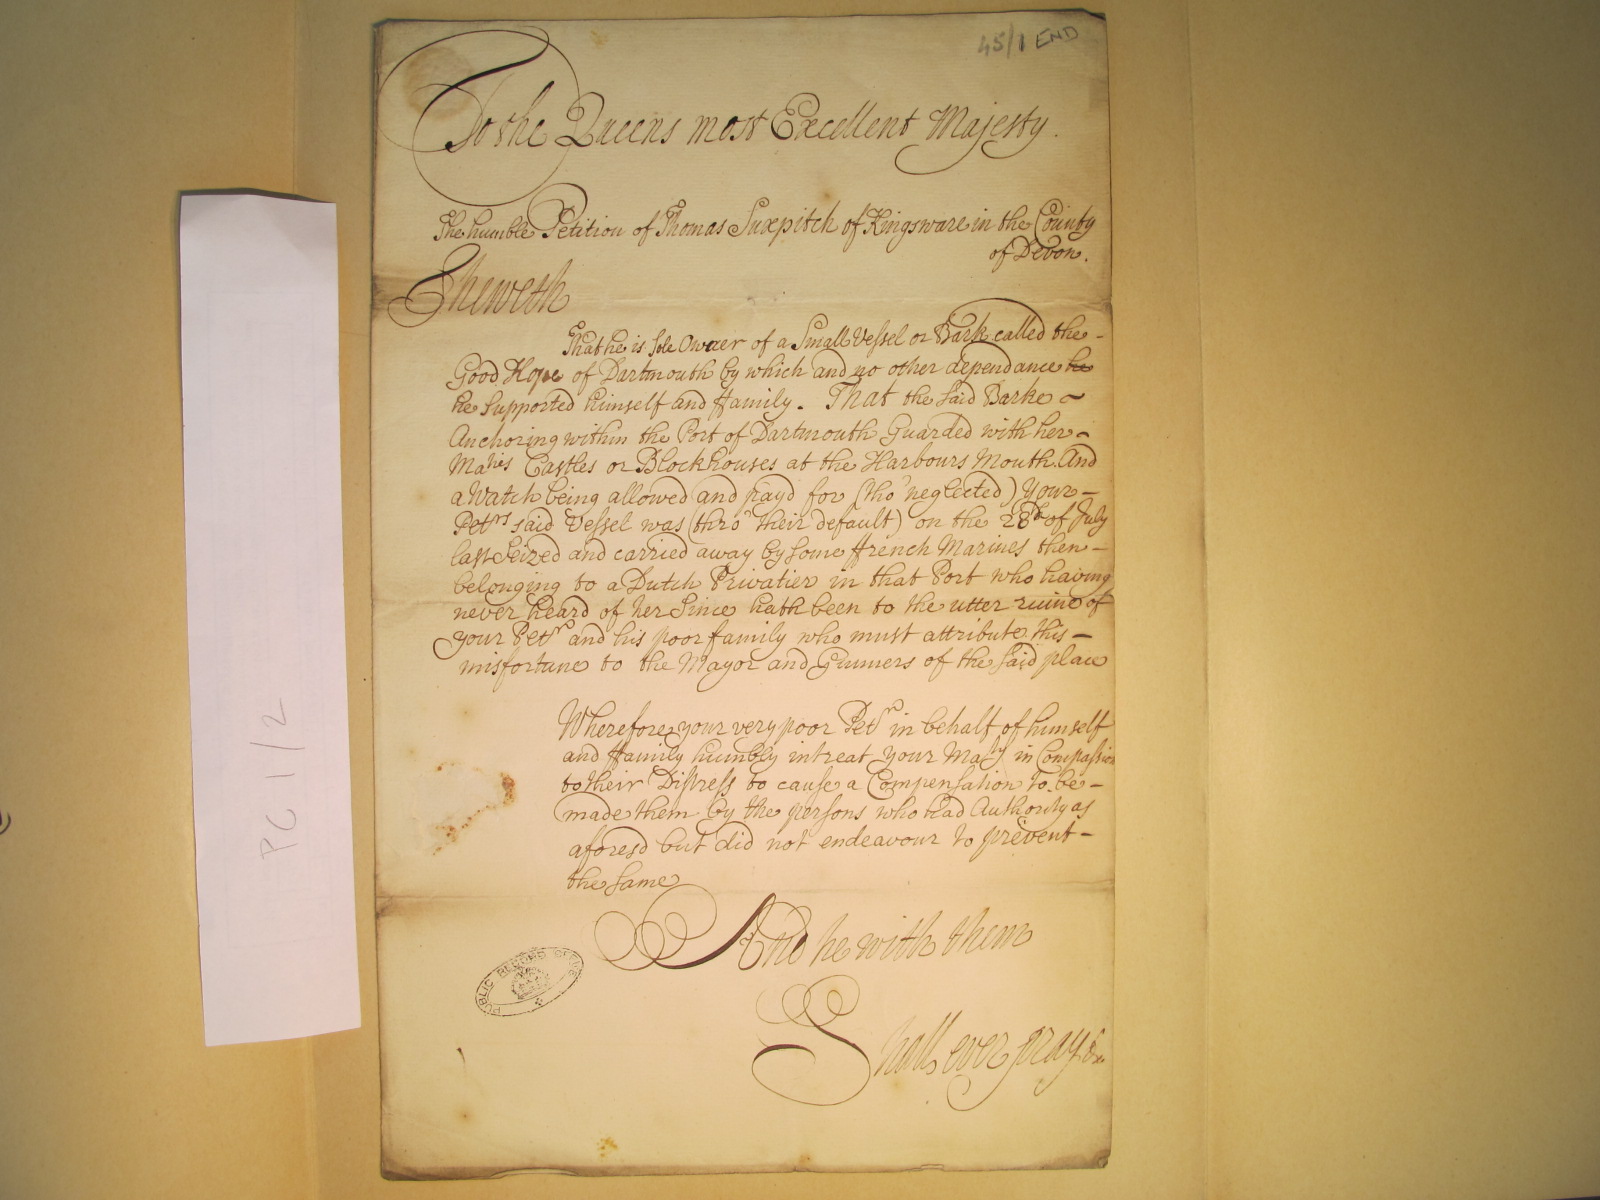 45/1 END
To the Queens most Excellent Majesty.
The humble Petition of Thomas Suxpitch of Kingsware in the County
of Devon.
Sheweth
That he is sole Owner of a Small Vessel or Bark called the -
Good Hope of Dartmouth by which and no other dependance he
he supported himself and ffamily. That the said Barke ~
Anchoring within the Port of Dartmouth Guarded with her -
Maties Castles or Blockhouses at the Harbours Mouth. And
a Watch being allowed and payd for (tho' neglected) Your -
Petrs said Vessel was (thro' their default) on the 28th of July
last Seized and carried away by some ffrench Marines then -
belonging to a Dutch Privatier in that Port who having
never heard of her Since hath been to the utter ruine of
your Petr and his poor family who must attribute this -
misfortune to the Mayor and Gunners of the said place
Wherefore your very poor Petr in behalf of himself
and ffamily humbly intreat your Maty in Compassion
to their Distress to cause a Compensation to be -
made them by the persons who had Authority as
aforesd but did not endeavour to prevent -
the same
And he with them
Shall ever pray &c
PUBLIC RECORD OFFICE
PC 1/2